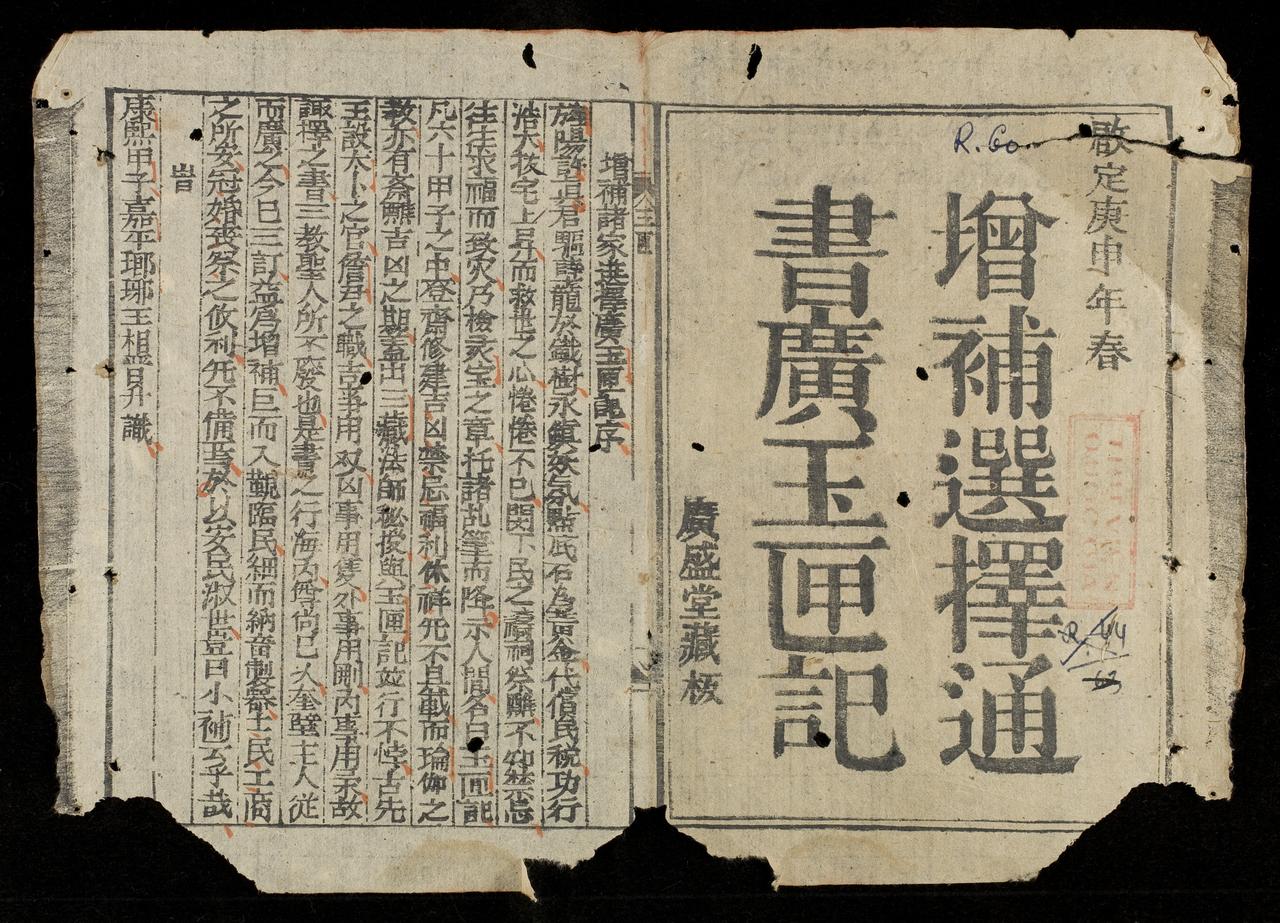 啟定庚申年春
增補選擇通
書廣玉匣記
廣盛堂藏板
R. 60
R. 44
63
增補諸家選擇廣玉匣記序
旌陽許真君驅孽龍於鐵樹永鎮妖氛點瓦石為黃金代償民稅功行
浩大拔宅上昇而救世之心惓惓不已閔下民之禱祠祭醮不知禁忌
往往求福而致灾乃檢灵宝之章托諸乩筆而降示人間名曰玉匣記
凡六十甲子之中登齋修建吉凶禁忌福利休祥兂不具載而瑜伽之
教亦有斎醮吉凶之期盖出三藏法師秘授與玉匣記並行不悖古先
王設太卜之官詹尹之職吉事用双凶事用隻外事用剛內事用柔故
諏擇之書三教聖人所不廢也是書之行海內尊尚已久奎壁主人從
而廣之今已三訂益為增補巨而入覲臨民細而納音製器士民工商
之所安冠婚喪祭之攸利兂不備焉於以安民淑世豈曰小補云乎哉
旹
康熙甲子嘉平瑯琊王相晉升識